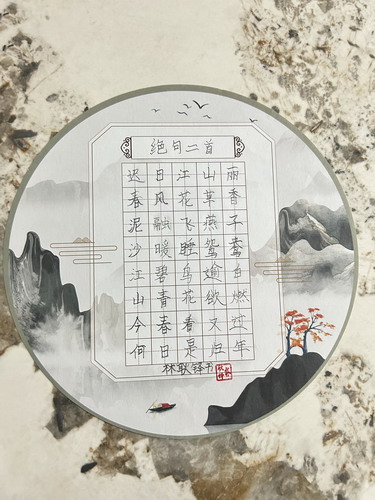 绝句二首
迟日江山丽
春风花草香
泥融飞燕子
沙暖睡鸳鸯
江碧鸟逾白
山青花欲燃
今春看又过
何日是归年
林耿铎书